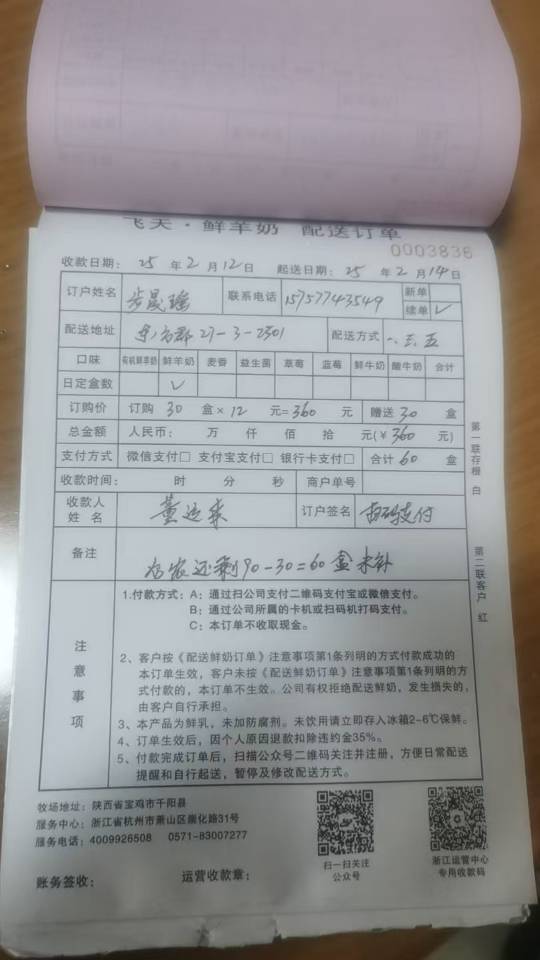 飞天·鲜羊奶 配送订单
0003836
收款日期: 25 年 2 月 12 日 起送日期: 25 年 2 月 14 日
订户姓名 步晟瑶 联系电话 15757743549 新单
续单 ✓
配送地址 27-3-2301 配送方式 一.三.五
口味 有机鲜羊奶 鲜羊奶 麦香 益生菌 草莓 蓝莓 鲜牛奶 酸牛奶 合计
日定盒数 ✓
订购价 订购 30 盒× 12 元= 360 元 赠送 30 盒
总金额 人民币: 万 仟 佰 拾 元(¥ 360 元)
支付方式 微信支付□ 支付宝支付□ 银行卡支付□ 合计 60 盒
收款时间: 时 分 秒 商户单号
收款人姓名 董运来 订户签名 扫码支付
备注 还剩90-30=60盒未补
注意事项
1.付款方式: A: 通过扫公司二维码支付宝或微信支付。
B: 通过公司所属的卡机或扫码机打码支付。
C: 本订单不收取现金。
2、客户按《配送鲜奶订单》注意事项第1条列明的方式付款成功的
本订单生效，客户未按《配送鲜奶订单》注意事项第1条列明的方
式付款的，本订单不生效。公司有权拒绝配送鲜奶，发生损失的，
由客户自行承担。
3、本产品为鲜乳，未加防腐剂。未饮用请立即存入冰箱2~6℃保鲜。
4、订单生效后，因个人原因退款扣除违约金35%。
5、付款完成订单后，扫描公众号二维码关注并注册，方便日常配送
提醒和自行起送，暂停及修改配送方式。
第一联存根 白
第二联客户 红
牧场地址: 陕西省宝鸡市千阳县
服务中心: 浙江省杭州市萧山区崇化路31号
服务电话: 4009926508 0571-83007277
扫一扫关注
公众号
浙江运营中心
专用收款码
账务签收: 运营收款章: